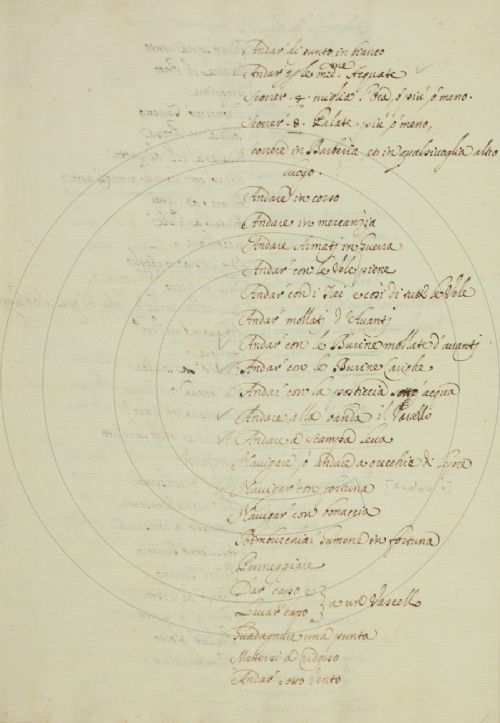 Andar di punto in bianco
Andar p le med.me Acquate
Scorrer 8. miglia l'ora, ò più ò meno.
Scorrer 8. Palate più ò meno,
Scorrere in Barberia et in qualsivoglia altro
luogo.
Andare in corso
Andare in mercanzia
Andare Armati in Guerra
Andar con le Vele piene
Andar con i e cosi di tutte le Vele
Andar mollati d'Avanti
Andar con le Burine mollate d'avanti
Andar con le Burine Cariche
Andar con la porticcia sott'acqua
Andare alla banda il Vassello
Andare a scampa leva
Navigare ò andare a orecchie di lepre
Navigar con fortuna
Navigar con bonaccia
in fortuna
Porreggiare
Dar carro e
Levar carro a un Vascello
Guadagnare una punta
Mettersi a ridosso
Andar sotto Vento